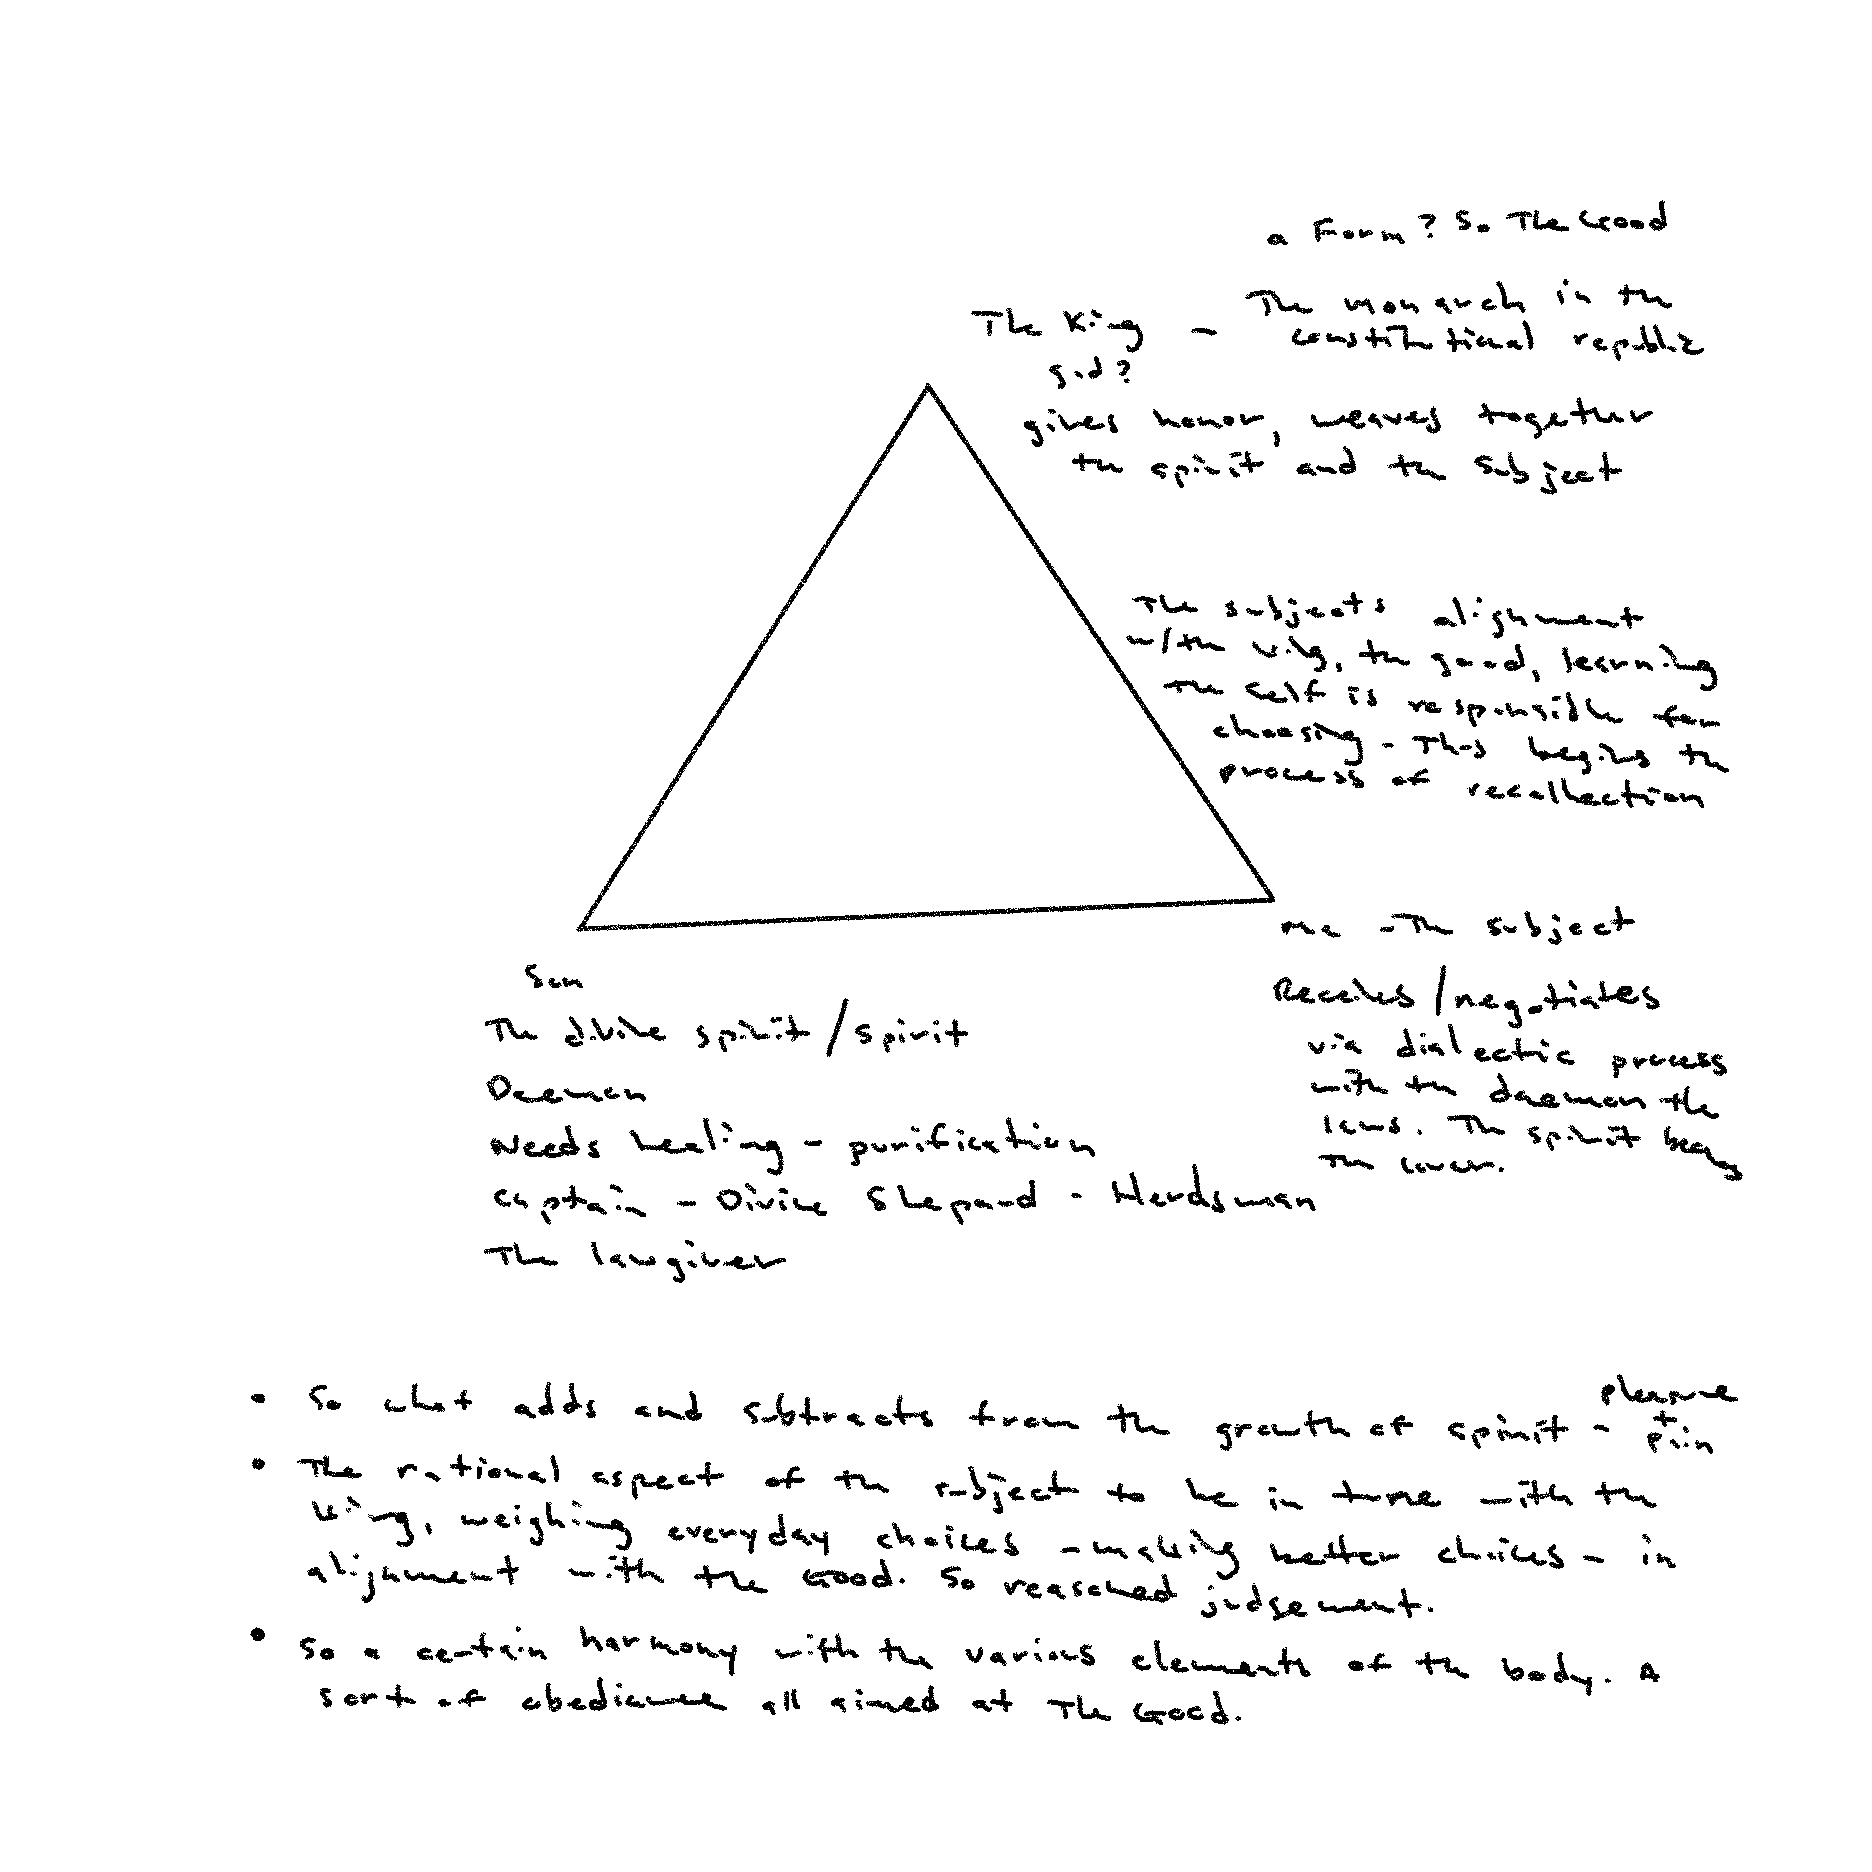 a Form? So The Good
The King - The monarch in the
constitutional republic
god?
gives honor, weaves together
the spirit and the subject
The subjects alignment
w/the king, the good, learning
The self is responsible for
choosing - This begins the
process of recollection
me - The subject
Receives/negotiates
via dialectic process
with the daemon the
laws. The spirit being
the lover.
Son
The divine spirit/spirit
Daemon
Needs healing - purification
captain - Divine Shepard - Herdsman
The lawgiver
• So what adds and subtracts from the growth of spirit - pleasure
+
pain
• The rational aspect of the subject to be in tune with the
king, weighing everyday choices - making better choices - in
alignment with the Good. So reasoned judgement.
• So a certain harmony with the various elements of the body. A
sort of obediance all aimed at The Good.